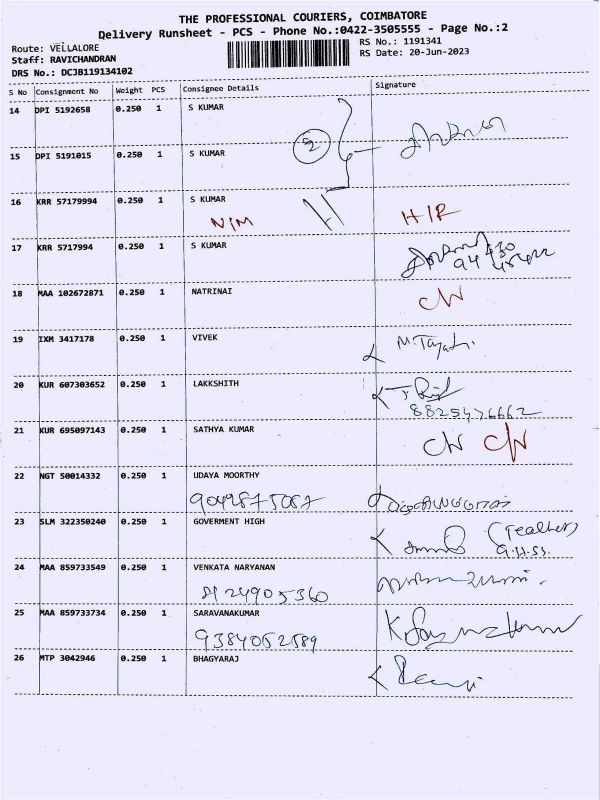 THE PROFESSIONAL COURIERS, COIMBATORE
Delivery Runsheet - PCS - Phone No.:0422-3505555 - Page No.:2
Route: VELLALORE
RS No.: 1191341
Staff: RAVICHANDRAN
RS Date: 20-Jun-2023
DRS No.: DCJB119134102
S No Consignment No Weight PCS Consignee Details Signature
14 DPI 5192658 0.250 1 S KUMAR
2
15 DPI 5191015 0.250 1 S KUMAR
16 KRR 57179994 0.250 1 S KUMAR
N/M H/R
17 KRR 5717994 0.250 1 S KUMAR
18 MAA 102672871 0.250 1 NATRINAI
C/W
19 IXM 3417178 0.250 1 VIVEK
20 KUR 607303652 0.250 1 LAKKSHITH
21 KUR 695097143 0.250 1 SATHYA KUMAR
C/W C/W
22 NGT 50014332 0.250 1 UDAYA MOORTHY
23 SLM 322350240 0.250 1 GOVERMENT HIGH
(Teacher)
G.H.SS.
24 MAA 859733549 0.250 1 VENKATA NARYANAN
8124905360
25 MAA 859733734 0.250 1 SARAVANAKUMAR
9384052589
26 MTP 3042946 0.250 1 BHAGYARAJ